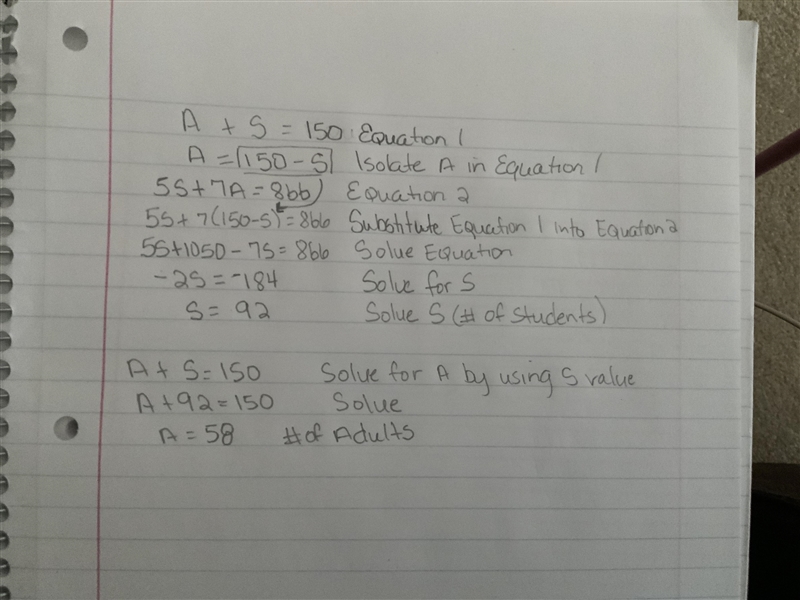 A + S = 150 Equation 1
A = 150 - S Isolate A in Equation 1
5S + 7A = 866 Equation 2
5S + 7(150-S) = 866 Substitute Equation 1 into Equation 2
5S + 1050 - 7S = 866 Solve Equation
-2S = -184 Solve for S
S = 92 Solve S (# of students)
A + S = 150 Solve for A by using S value
A + 92 = 150 Solve
A = 58 # of Adults